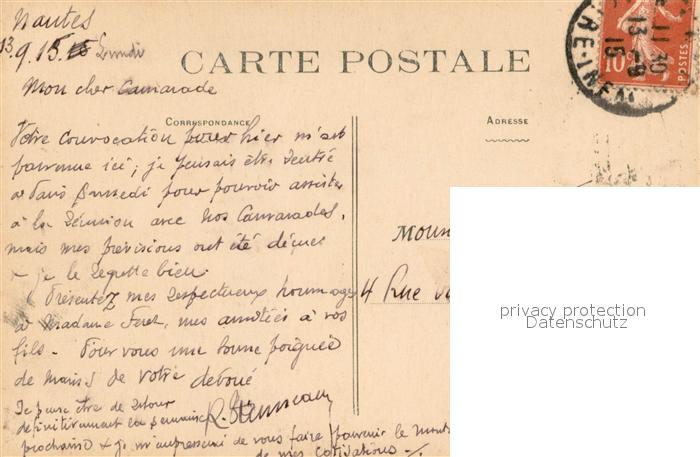 Nantes
13.9.15 Lundi
CARTE POSTALE
11 30
13 - 9
15
RE-INFRE
10
POSTES
Mon cher Camarade
CORRESPONDANCE
ADRESSE
Votre convocation pour hier m'est
parvenue ici ; je pensais être rentré
à Paris Samedi pour pouvoir assister
à la Réunion avec nos Camarades,
mais mes prévisions ont été déçues
& je le regrette bien.
Présentez mes respectueux hommages
à Madame Feret, mes amitiés à vos
fils - Pour vous une bonne poignée
de mains de votre dévoué
Je pense être de retour
définitivement la semaine
prochaine & je m'empresserai de vous faire parvenir le mont
de mes cotisations -.
Moun
4 Rue
privacy protection
Datenschutz